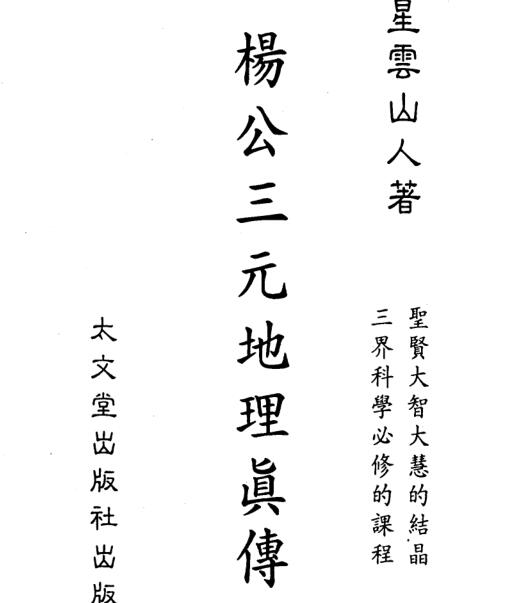 星雲山人著
聖賢大智大慧的結晶
三界科學必修的課程
楊公三元地理眞傳
太文堂出版社出版